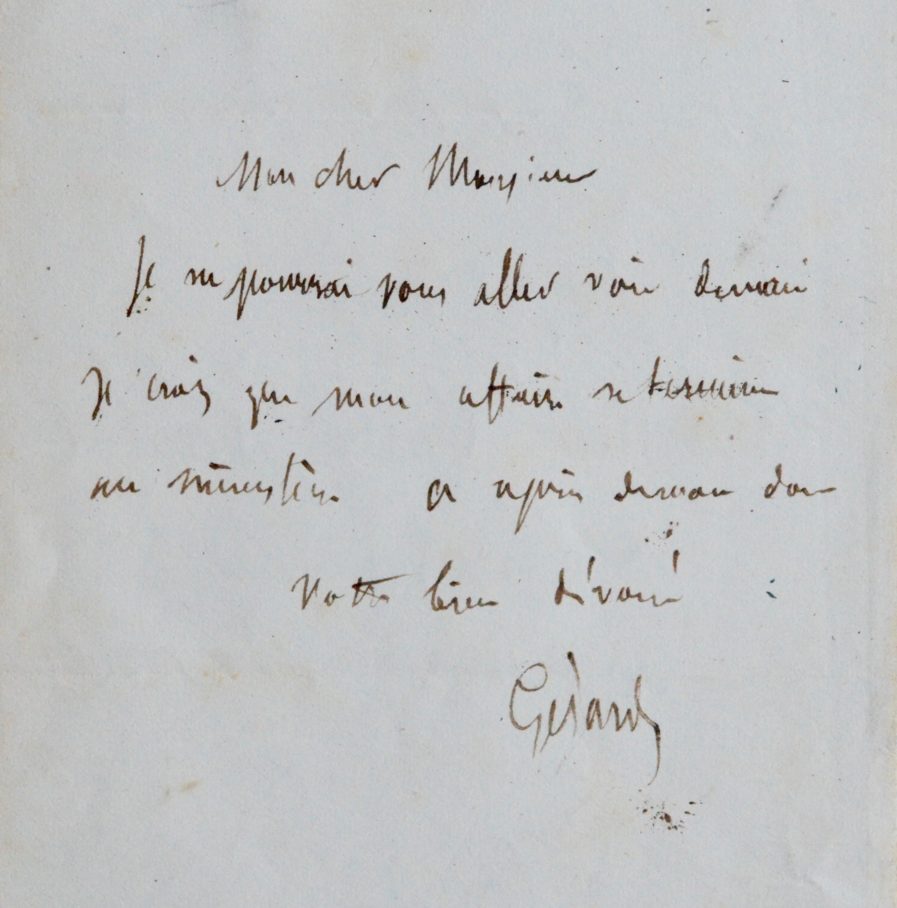 Mon cher Monsieur
Je ne pourrai vous aller voir demain
Je crois que mon affaire se termine
au ministère a après demain donc
Votre bien dévoué
Gérard